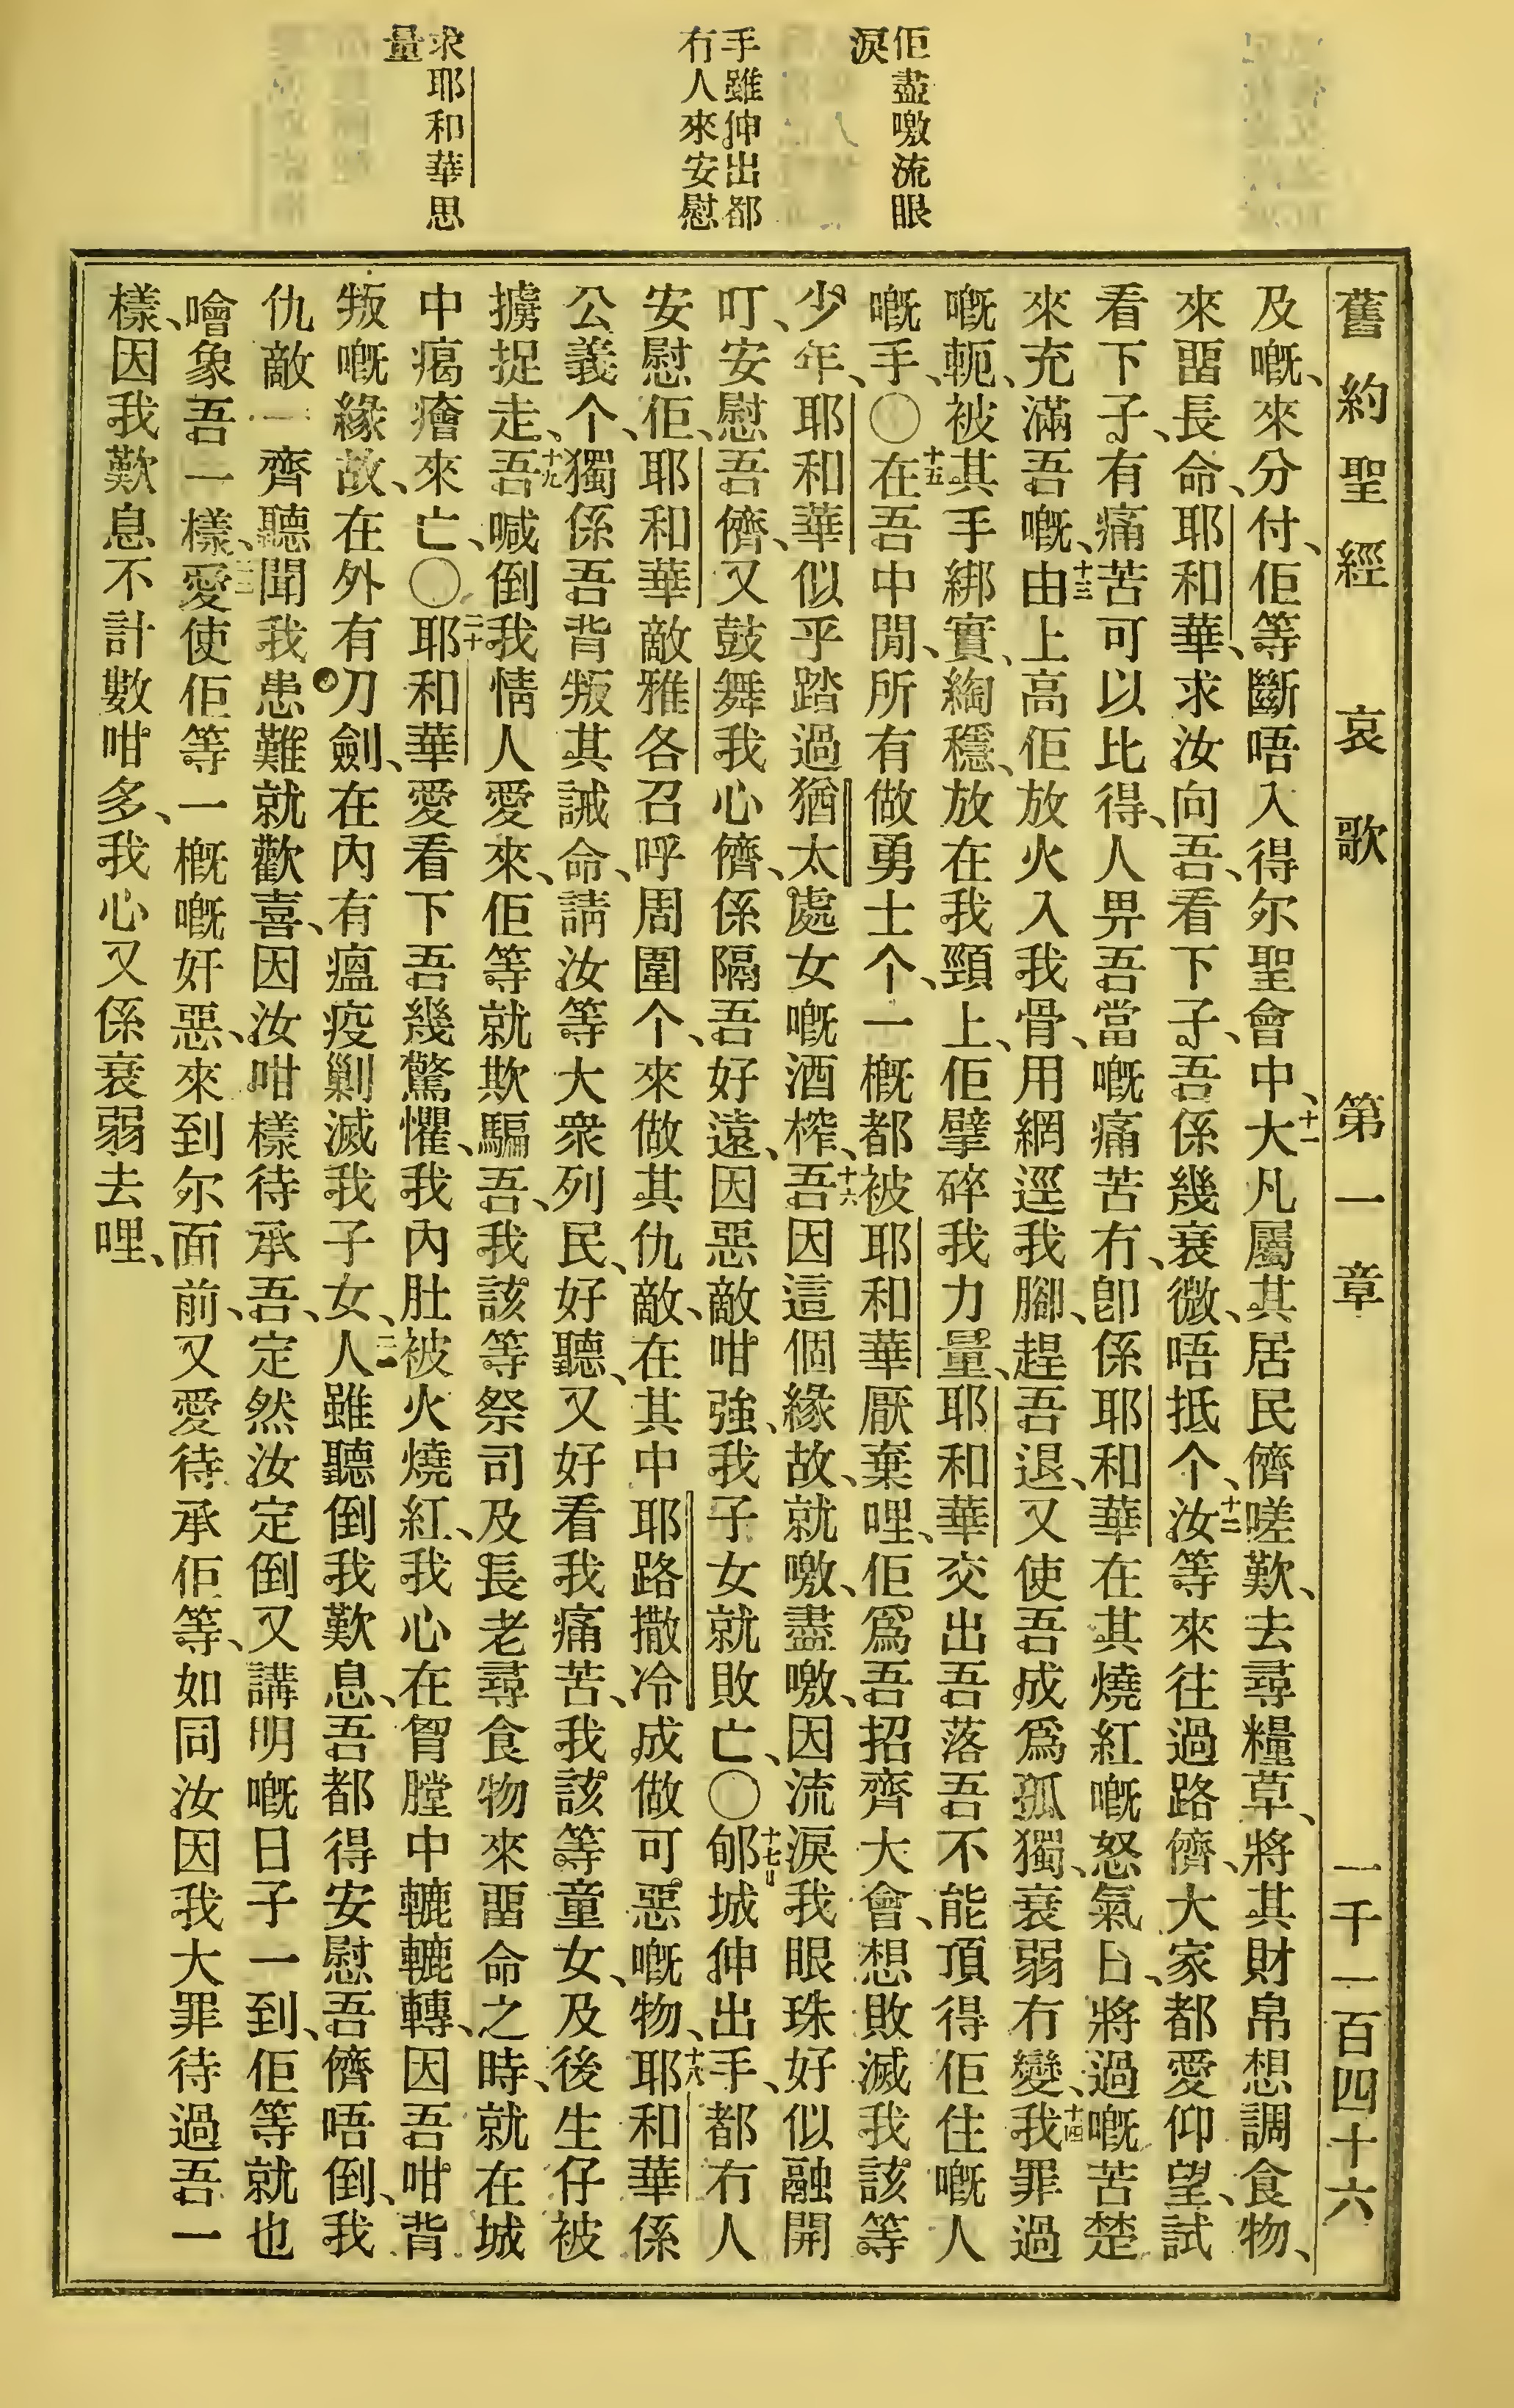 佢盡噭流眼
淚
手雖伸出都
冇人來安慰
求耶和華思
量
舊約聖經 哀歌 第一章 一千一百四十六
及嘅、來分付、佢等斷唔入得尔聖會中、十一大凡屬其居民儕嗟歎、去尋糧草、將其財帛想調食物、
來畱長命、耶和華、求汝向吾、看下子、吾係幾衰微、唔抵个、十二汝等來往過路儕、大家都愛仰望、試
看下子、有痛苦可以比得、人畀吾當嘅痛苦冇、卽係耶和華在其燒紅嘅怒氣日、將過嘅苦楚
來充滿吾嘅、十三由上高佢放火入我骨、用網逕我腳、趕吾退、又使吾成爲孤獨、衰弱冇變、十四我罪過
嘅軛、被其手綁實、綯穩、放在我頸上、佢擘碎我力量、耶和華交出吾落吾不能頂得佢住嘅人
嘅手、〇十五在吾中閒、所有做勇士个、一概都被耶和華厭棄哩、佢爲吾招齊大會、想敗滅我該等
少年、耶和華似乎踏過猶太處女嘅酒榨、十六吾因這個緣故、就噭、盡噭、因流淚我眼珠好似融開
叮、安慰吾儕、又鼓舞我心儕、係隔吾好遠、因惡敵咁強、我子女就敗亡、〇十七郇城伸出手、都冇人
安慰佢、耶和華敵雅各召呼周圍个、來做其仇敵、在其中耶路撒冷成做可惡嘅物、十八耶和華係
公義个、獨係吾背叛其誡命、請汝等大衆列民、好聽、又好看我痛苦、我該等童女、及後生仔被
擄捉走、十九吾喊倒我情人愛來、佢等就欺騙吾、我該等祭司及長老尋食物來畱命之時、就在城
中瘑癐來亡、〇二十耶和華愛看下吾幾驚懼、我內肚被火燒紅、我心在胷膛中轆轆轉、因吾咁背
叛嘅緣故、在外有刀劍、在內有瘟疫剿滅我子女、二一人雖聽倒我歎息、吾都得安慰吾儕唔倒、我
仇敵一齊聽聞我患難、就歡喜、因汝咁樣待承吾、定然汝定倒又講明嘅日子一到、佢等就也
噲象吾一樣、愛使佢等一概嘅奸惡、來到尔面前、又愛待承佢等、如同汝因我大罪待過吾一
樣、因我歎息不計數咁多、我心又係衰弱去哩、